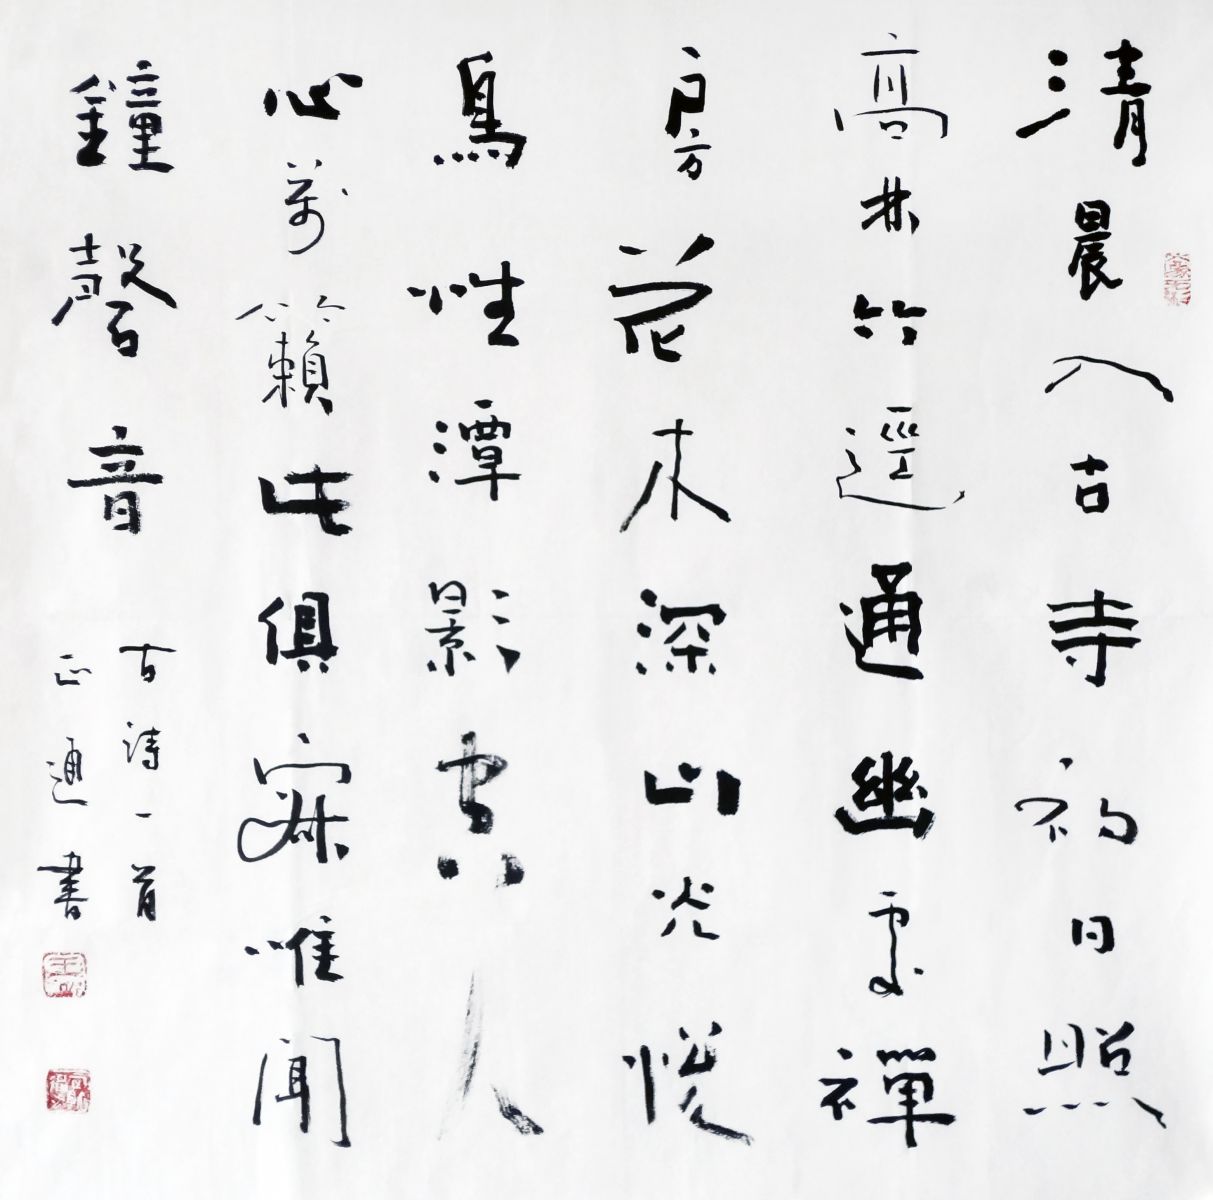 清晨入古寺初日照
高林竹逕通幽處禪
房花木深山光悅
鳥性潭影空人
心萬籟此俱寂唯聞
鐘磬音
古詩一首
正通書